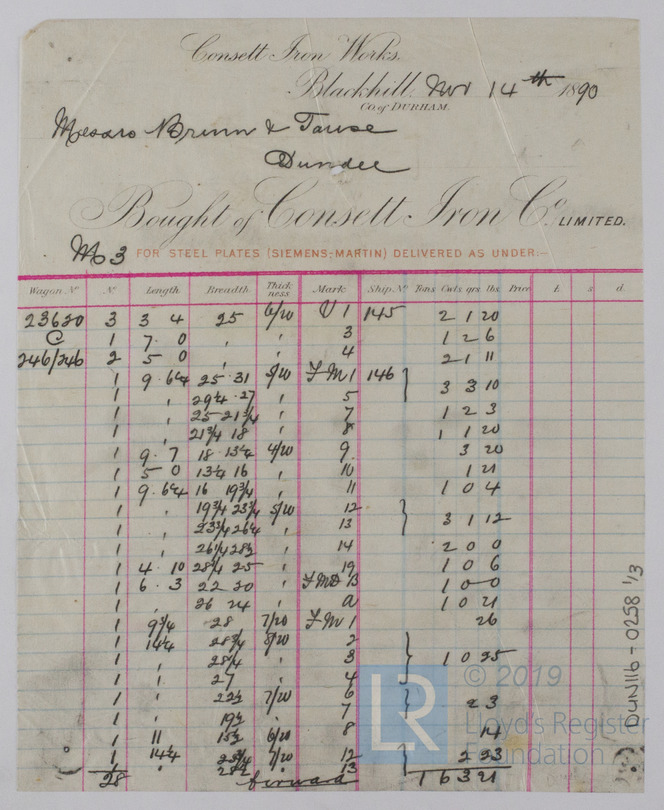 Consett Iron Works.
Blackhill, Nov 14th 1890
Co. of DURHAM.
Messrs Brown &
Dundee
Bought of Consett Iron Co. LIMITED.
No 3 FOR STEEL PLATES (SIEMENS-MARTIN) DELIVERED AS UNDER:-
Wagon No No Length Breadth Thickness Mark Ship No Tons Cwts qrs lbs Price £ s d.
23620 3 3 4 25 6/20 U 1 145 2 1 20
C 1 7 0 " " 3 1 2 6
246/246 2 5 0 " " 4 2 1 11
1 9 6¼ 25 31 5/20 F M 1 146 }
1 " 29¼ 27 " 5 } 3 3 10
1 " 25 21¾ " 7 1 2 3
1 " 21¾ 18 " 8 1 1 20
1 9 7 18 13¼ 4/20 9 3 20
1 5 0 13¼ 16 " 10 1 21
1 9 6¼ 16 19¾ " 11 1 0 4
1 " 19¾ 23¾ 5/20 12 }
1 " 23¾ 26¼ " 13 } 3 1 12
1 " 26¼ 28½ " 14 2 0 0
1 4 10 28¼ 25 " 19 1 0 6
1 6 3 22 20 " B 1 0 0
1 " 26 24 " a 1 0 21
1 9¾ 28 7/20 F M 1 26
1 14¼ 28¾ 8/20 2 }
1 " 28¼ " 3 } 1 0 25
1 " 27 " 4 }
1 " 22½ 7/20 6 }
1 " 19½ " 7 } 2 3
1 11 15½ 6/20 8 14
1 14¼ 25¾ 7/20 12 } 2 23
1 " 28½ " 13 }
28 forward 1 6 3 21
DUN116-0258 1/3
LR
© 2019
Lloyd's Register
Foundation